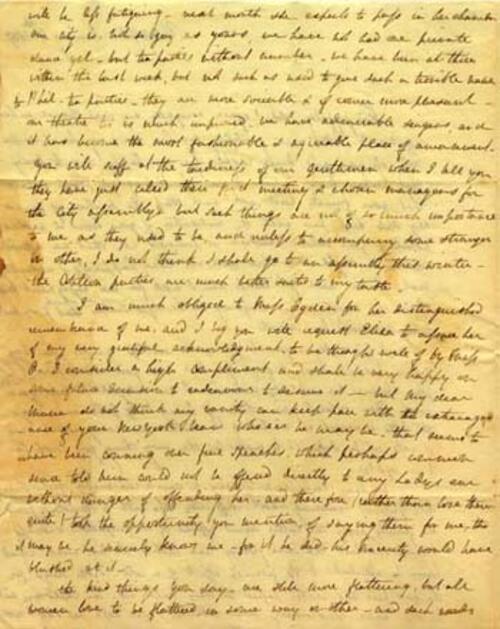 will be less fatiguing - next month she expects to pass in her chamber
our city is not so gay as yours, we have not had one private
dance yet - but tea parties without number - we have been at three
within the last week, but not such as used to give such a terrible name
to Phil. tea parties - they are more sociable & of course more pleasant -
our theatre is much improved, we have admirable singers, and
it has become the most fashionable & agreeable place of amusement.
You will scoff at the tardiness of our gentlemen when I tell you
they have just called their first meeting & chosen managers for
the City assemblys but such things are not of so much importance
to me as they used to be, and unless to accompany some stranger
or other, I do not think I shall go to an assembly this winter -
the Cotilion parties are much better suited to my taste
I am much obliged to Miss for her distinguished
remembrance of me, and I beg you will request Eliza to assure her
of my very grateful acknowledgment, to be thought well of by Miss
I consider a high compliment, and shall be very happy on
some future occasion to endeavour to deserve it - but my dear
do not think any vanity can keep pace with the
of your New York who ever he may be - that seems to
have been conning over fine speeches, which perhaps
told him could not be offered directly to any Ladys ear
without danger of offending her, and therefore (rather than lose them
quite) took the opportunity you mention, of saying them for me, tho
it may be, he scarcely knows me - for if he did - his sincerity would have
blushed at it -
the kind things you say - are still more flattering, but all
women love to be flattered in some way or other - and such words